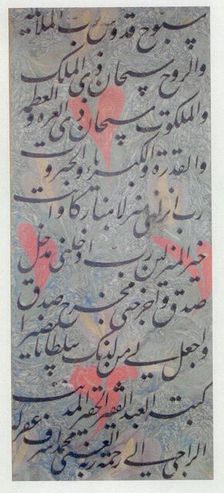 سبوح قدوس رب الملائكة
والروح سبحان ذي الملك
والملكوت سبحان ذي العزة والعظمة
والقدرة والكبرياء والجبروت
رب انزلني منزلا مباركا وانت
خير المنزلين رب ادخلني مدخل
صدق واخرجني مخرج صدق
واجعل لي من لدنك سلطانا نصيرا
كتبه العبد الفقير الحقير المذنب
الراجي الى رحمة ربه الغني محمد شرف غفر له